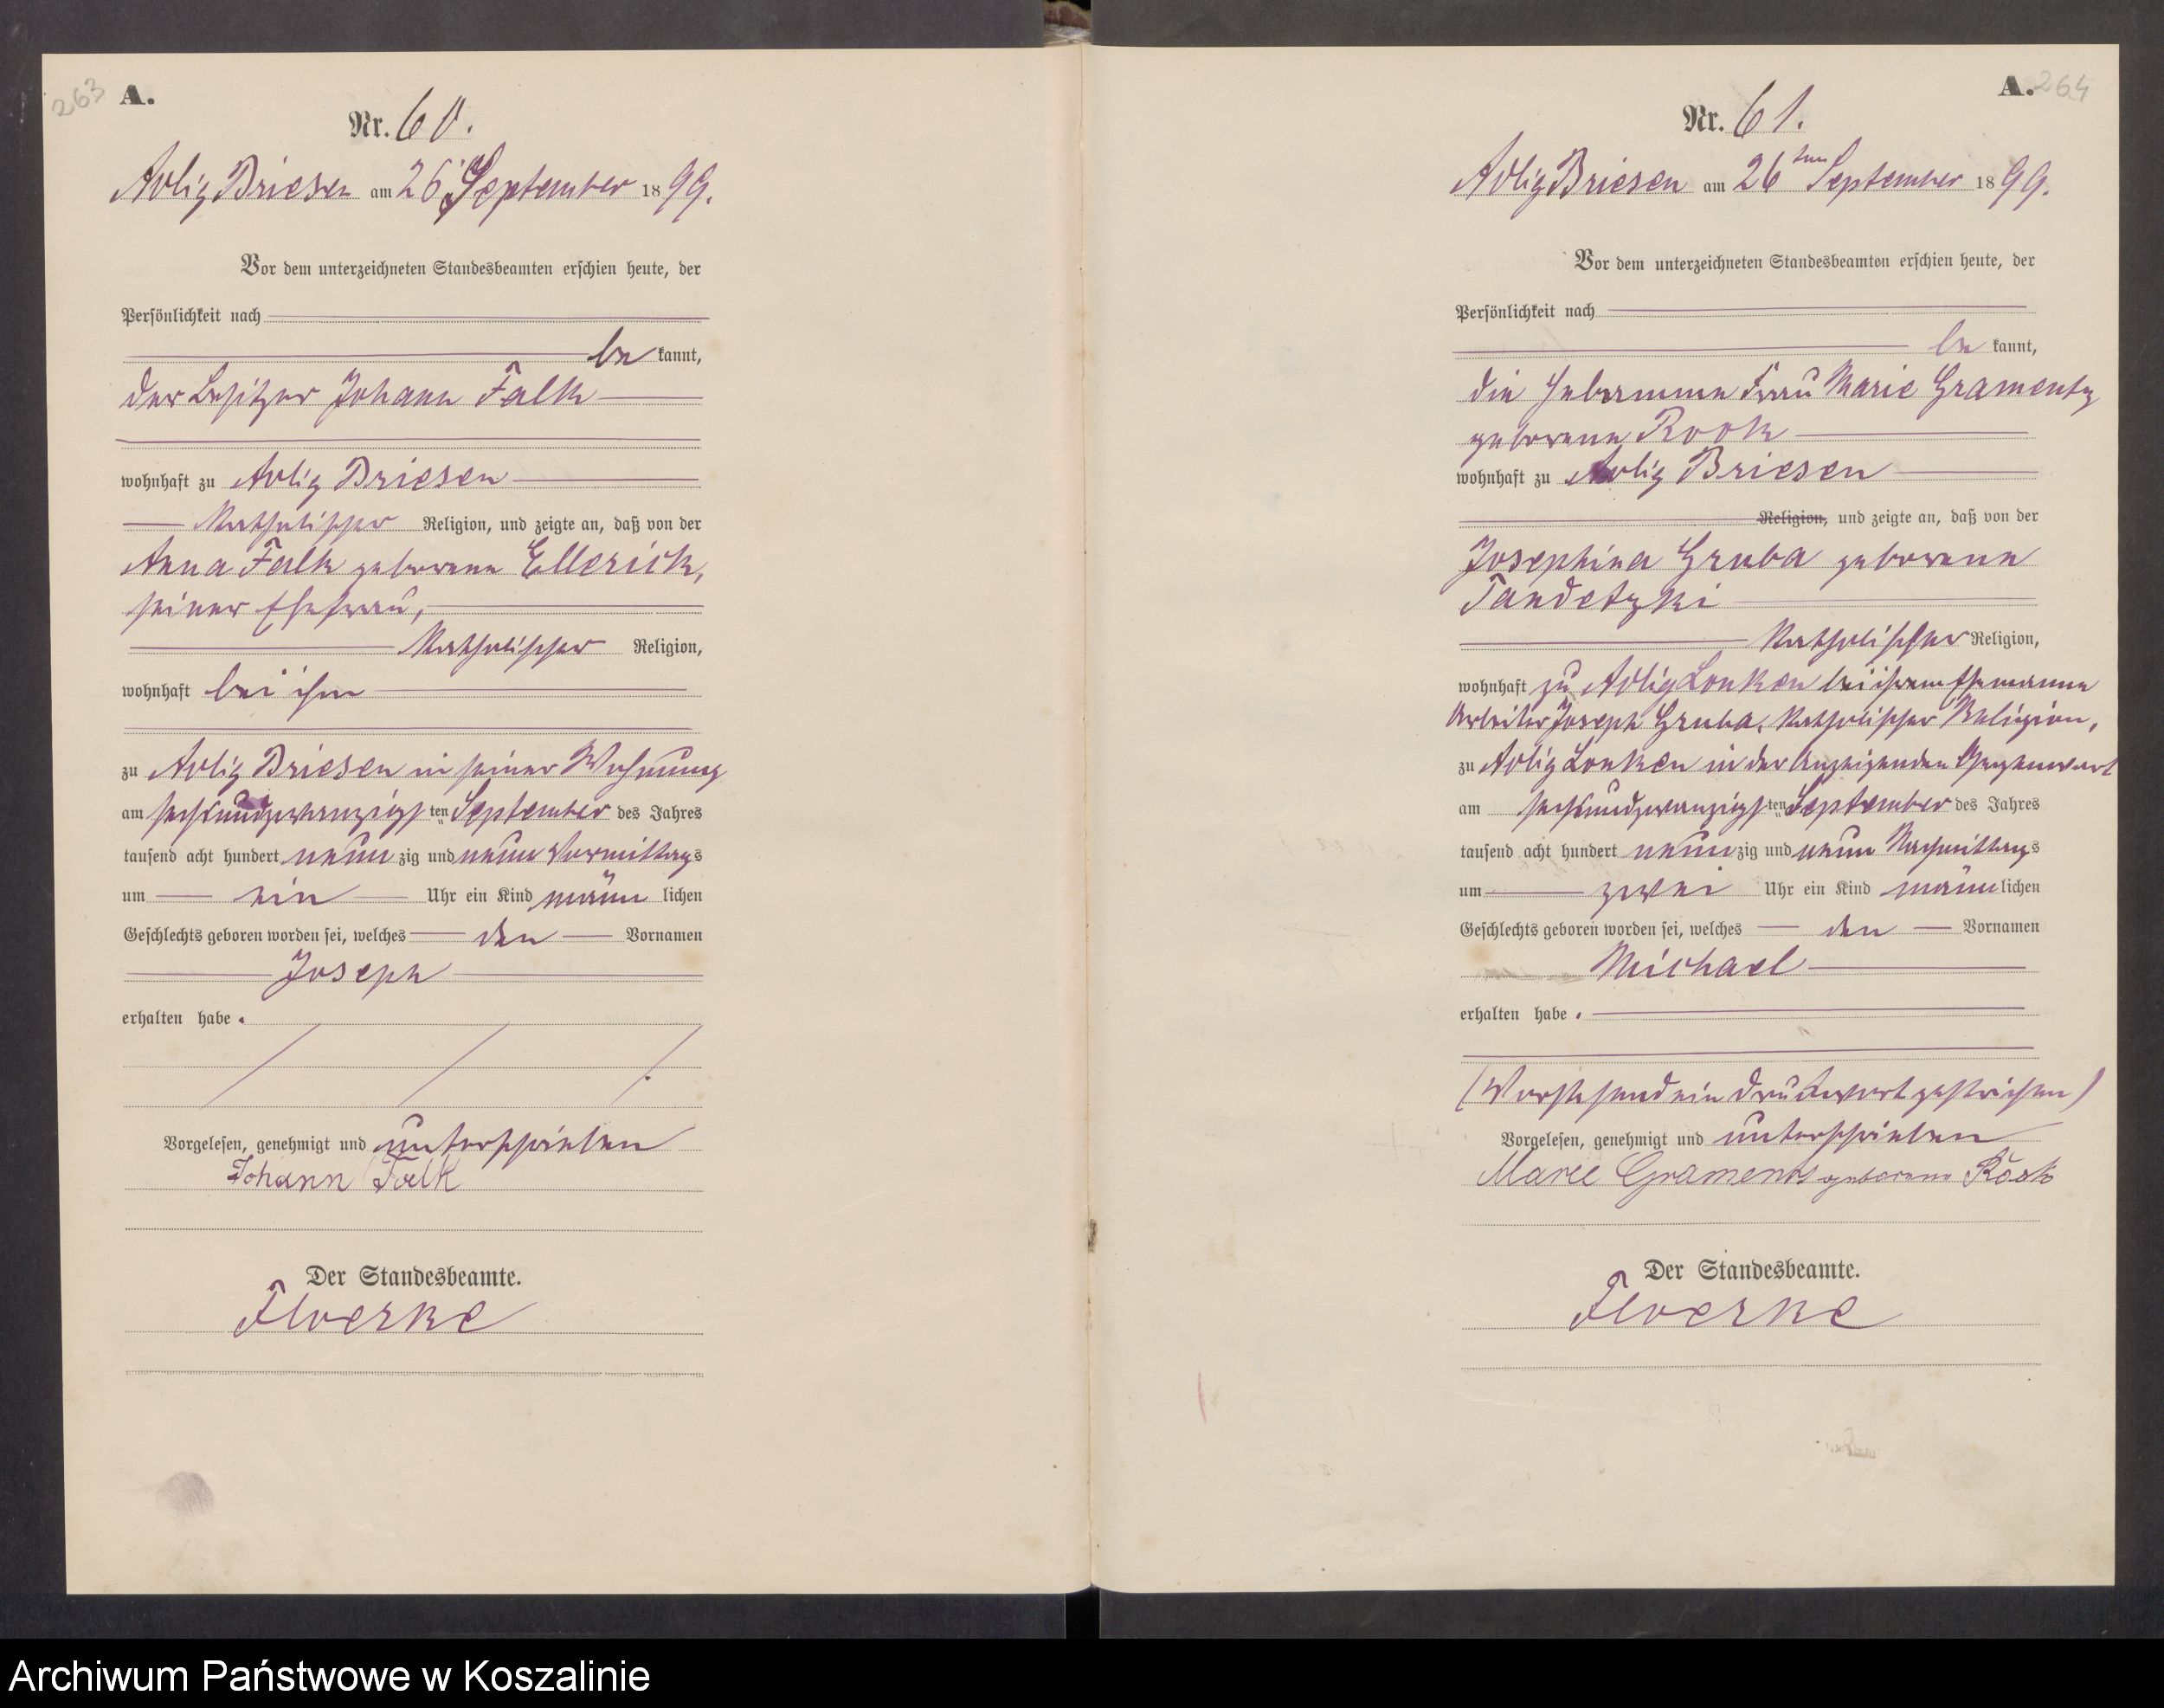 263
A.
Nr. 60.
Adlig Briesen am 26 September 1899.
Vor dem unterzeichneten Standesbeamten erschien heute, der
Persönlichkeit nach
be kannt,
der Besitzer Johann Falk
wohnhaft zu Adlig Briesen
katholischer Religion, und zeigte an, daß von der
Anna Falk geborene Ellerick,
seiner Ehefrau,
katholischer Religion,
wohnhaft bei ihm
zu Adlig Briesen in seiner Wohnung
am sechsundzwanzigsten September des Jahres
tausend acht hundert neunzig und neun Vormittags
um ein Uhr ein Kind männlichen
Geschlechts geboren worden sei, welches den Vornamen
Joseph
erhalten habe.
Vorgelesen, genehmigt und unterschrieben
Johann Falk
Der Standesbeamte.
A. 264
Nr. 61.
Adlig Briesen am 26ten September 1899.
Vor dem unterzeichneten Standesbeamten erschien heute, der
Persönlichkeit nach
be kannt,
die Hebamme Frau Marie Gramentz
geborene Rook
wohnhaft zu Adlig Briesen
Religion, und zeigte an, daß von der
Josephina Gruba geborene
Tandetzki
katholischer Religion,
wohnhaft zu Adlig Lonken bei ihrem Ehemanne
Arbeiter Joseph Gruba, katholischer Religion,
zu Adlig Lonken in der Anzeigenden Gegenwart
am sechsundzwanzigsten September des Jahres
tausend acht hundert neunzig und neun Nachmittags
um zwei Uhr ein Kind männlichen
Geschlechts geboren worden sei, welches den Vornamen
Michael
erhalten habe.
(Vorstehend ein Druckwort gestrichen)
Vorgelesen, genehmigt und unterschrieben
Marie Gramentz geborene
Der Standesbeamte.
Archiwum Państwowe w Koszalinie